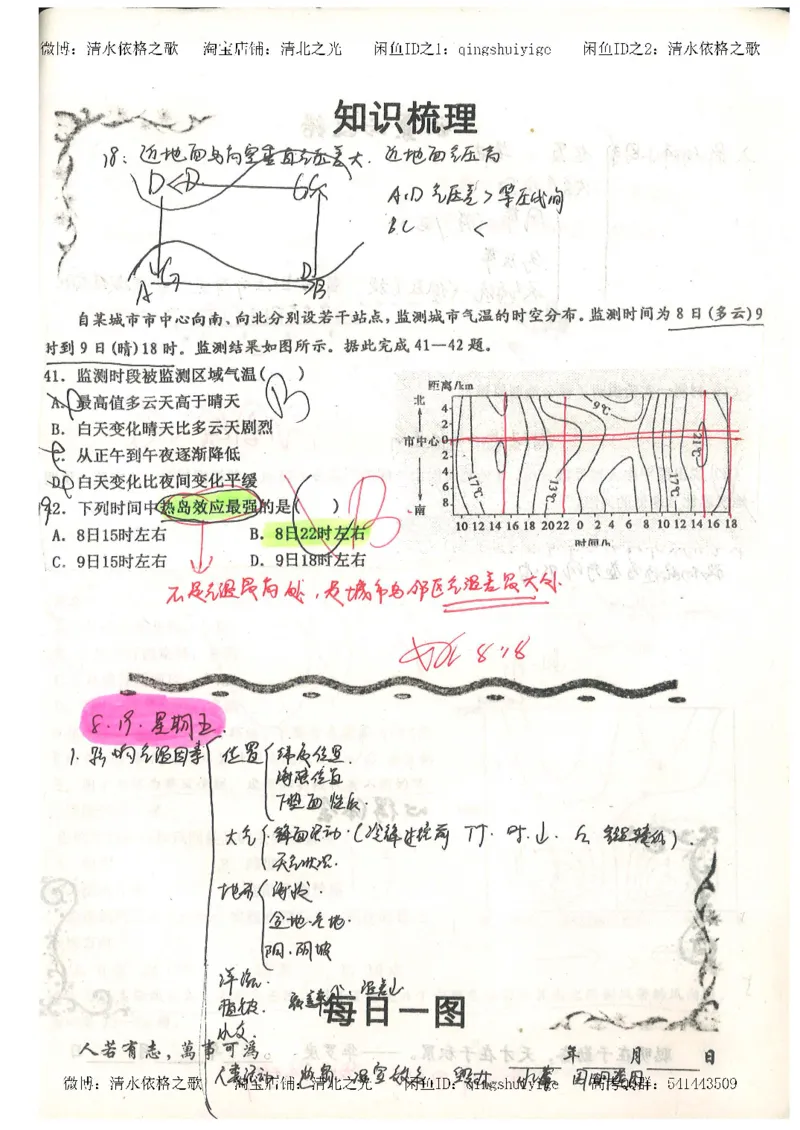 微博：清水依格之歌 淘宝店铺：清北之光 闲鱼ID之1：qingshuiyige 闲鱼ID之2：清水依格之歌
知识梳理
18：近地面与高空垂直气压差大．近地面气压高
A.D 气压差 > 等压线间
BC <
A B
自某城市市中心向南、向北分别设若干站点，监测城市气温的时空分布。监测时间为 8 日(多云)9
时到 9 日(晴)18 时。监测结果如图所示。据此完成 41—42 题。
41．监测时段被监测区域气温( B )
A．最高值多云天高于晴天
B．白天变化晴天比多云天剧烈
C．从正午到午夜逐渐降低
D．白天变化比夜间变化平缓
42．下列时间中热岛效应最强的是( B )
A．8日15时左右 B．8日22时左右
C．9日15时左右 D．9日18时左右
距离/km
北
4
2
市中心 0
2
4
6
8
南
9℃
21℃
17℃
13℃
17℃
10 12 14 16 18 20 22 0 2 4 6 8 10 12 14 16 18
时间/h
不是气温最高处，是城市与邻区气温差最大处
8.18
8.19.星期五.
1. 影响气温因素
位置
纬度位置.
海陆位置
下垫面性质.
大气
锋面活动.
天气状况.
地形
海拔.
盆地.谷地.
阳.阴坡
洋流.
植被.
水文.
每日一图
人若有志，萬事可為
年 月 日
人类活动
微博：清水依格之歌 淘宝店铺：清北之光 闲鱼ID：qingshuiyige QQ群：541443509